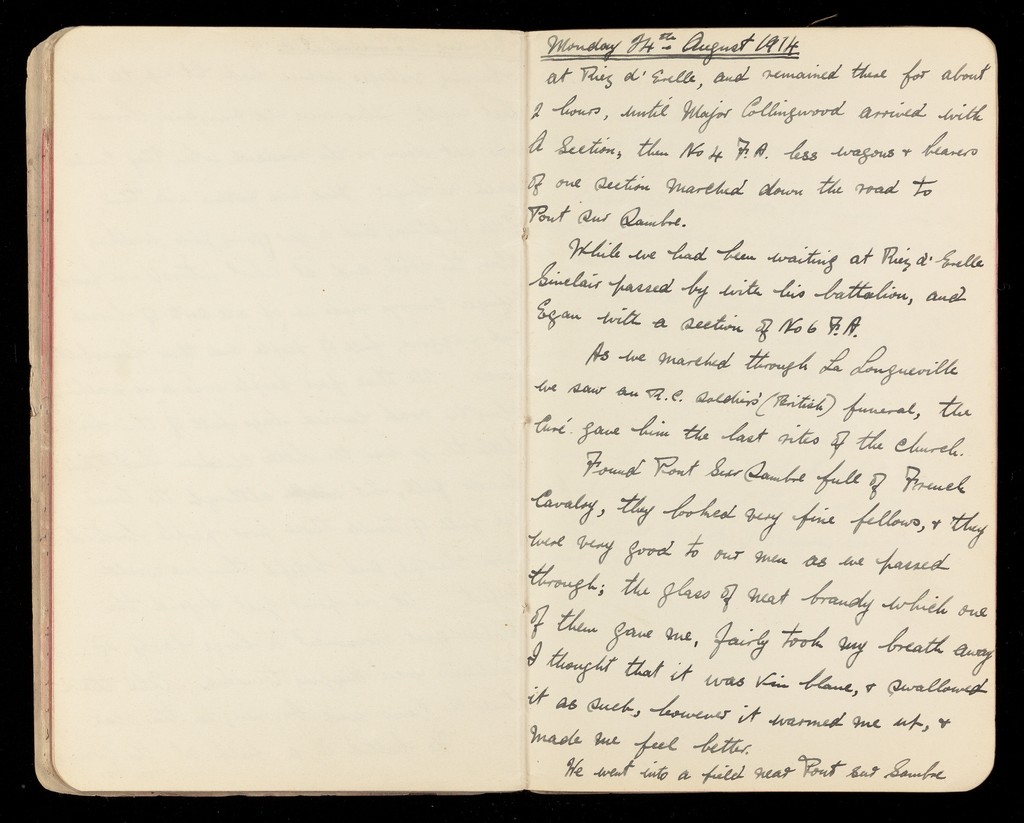 Monday 24th August 1914
at Riez d'Erelle, and remained there for about
2 hours, until Major Collingwood arrived with
A Section, then No 4 F.A. less wagons & bearers
of one section marched down the road to
Pont sur Sambre.
While we had been waiting at Riez d'Erelle
Sinclair passed by with his battalion, and
Egan with a section of No 6 F.A.
As we marched through La Longueville
we saw an R.C. soldiers' (British) funeral, the
Curé gave him the last rites of the church.
Found Pont Sur Sambre full of French
Cavalry, they looked very fine fellows, & they
were very good to our men as we passed
through; the glass of neat brandy which one
of them gave me, fairly took my breath away
I thought that it was Vin blanc, & swallowed
it as such, however it warmed me up, &
made me feel better.
We went into a field near Pont sur Sambre